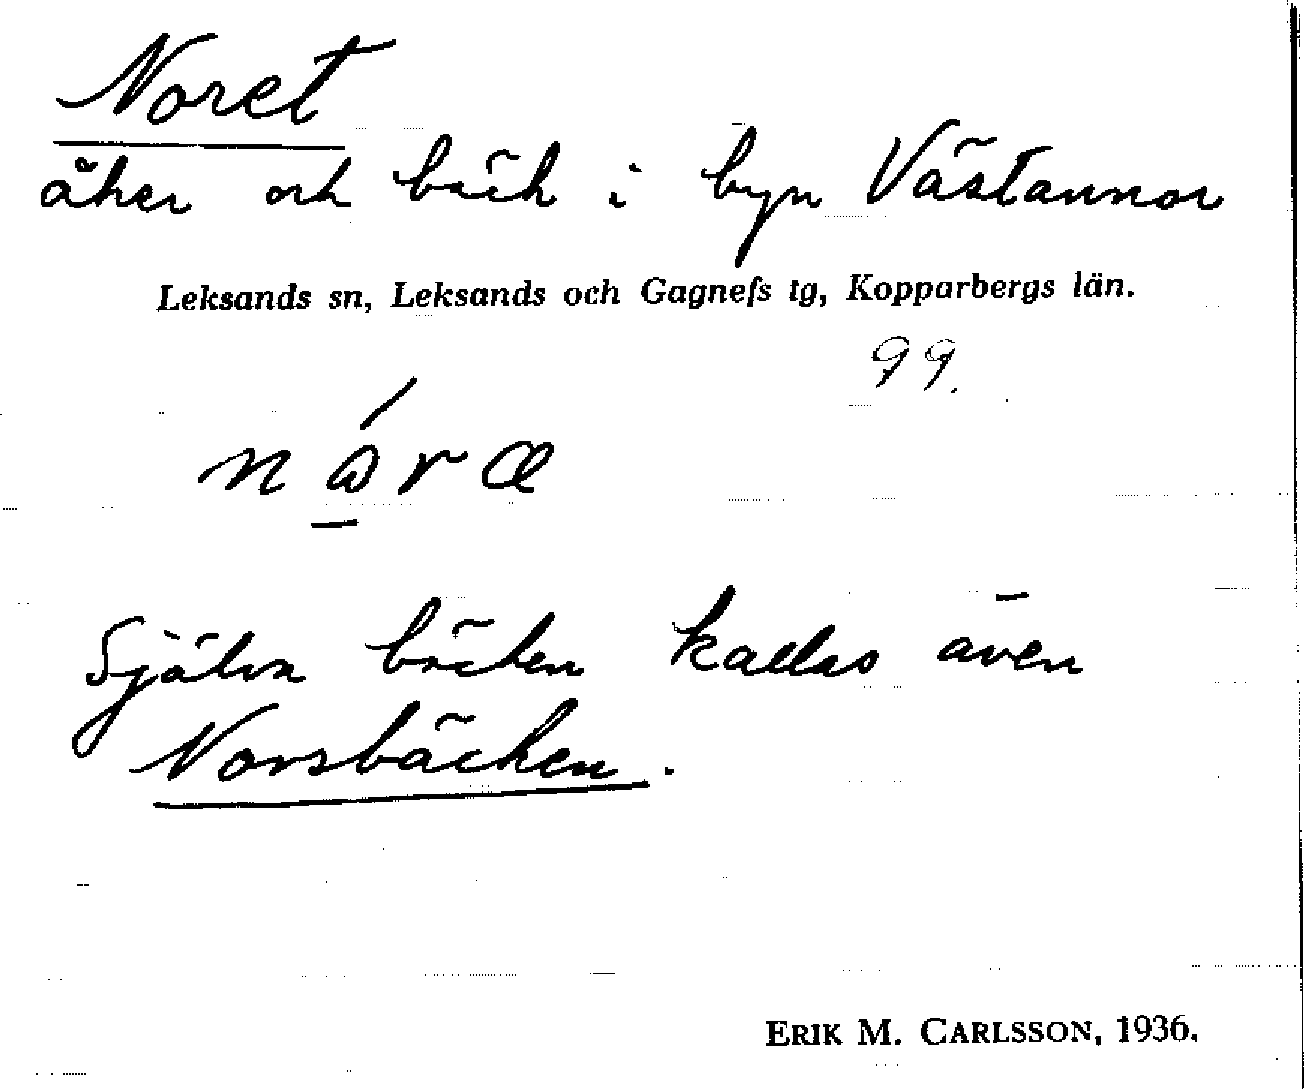 Noret
åker och bäck i byn Västannor
Leksands sn, Leksands och Gagnefs tg, Kopparbergs län.
99.
Själva bäcken kallas även
Norsbäcken.
ERIK M. CARLSSON, 1936.